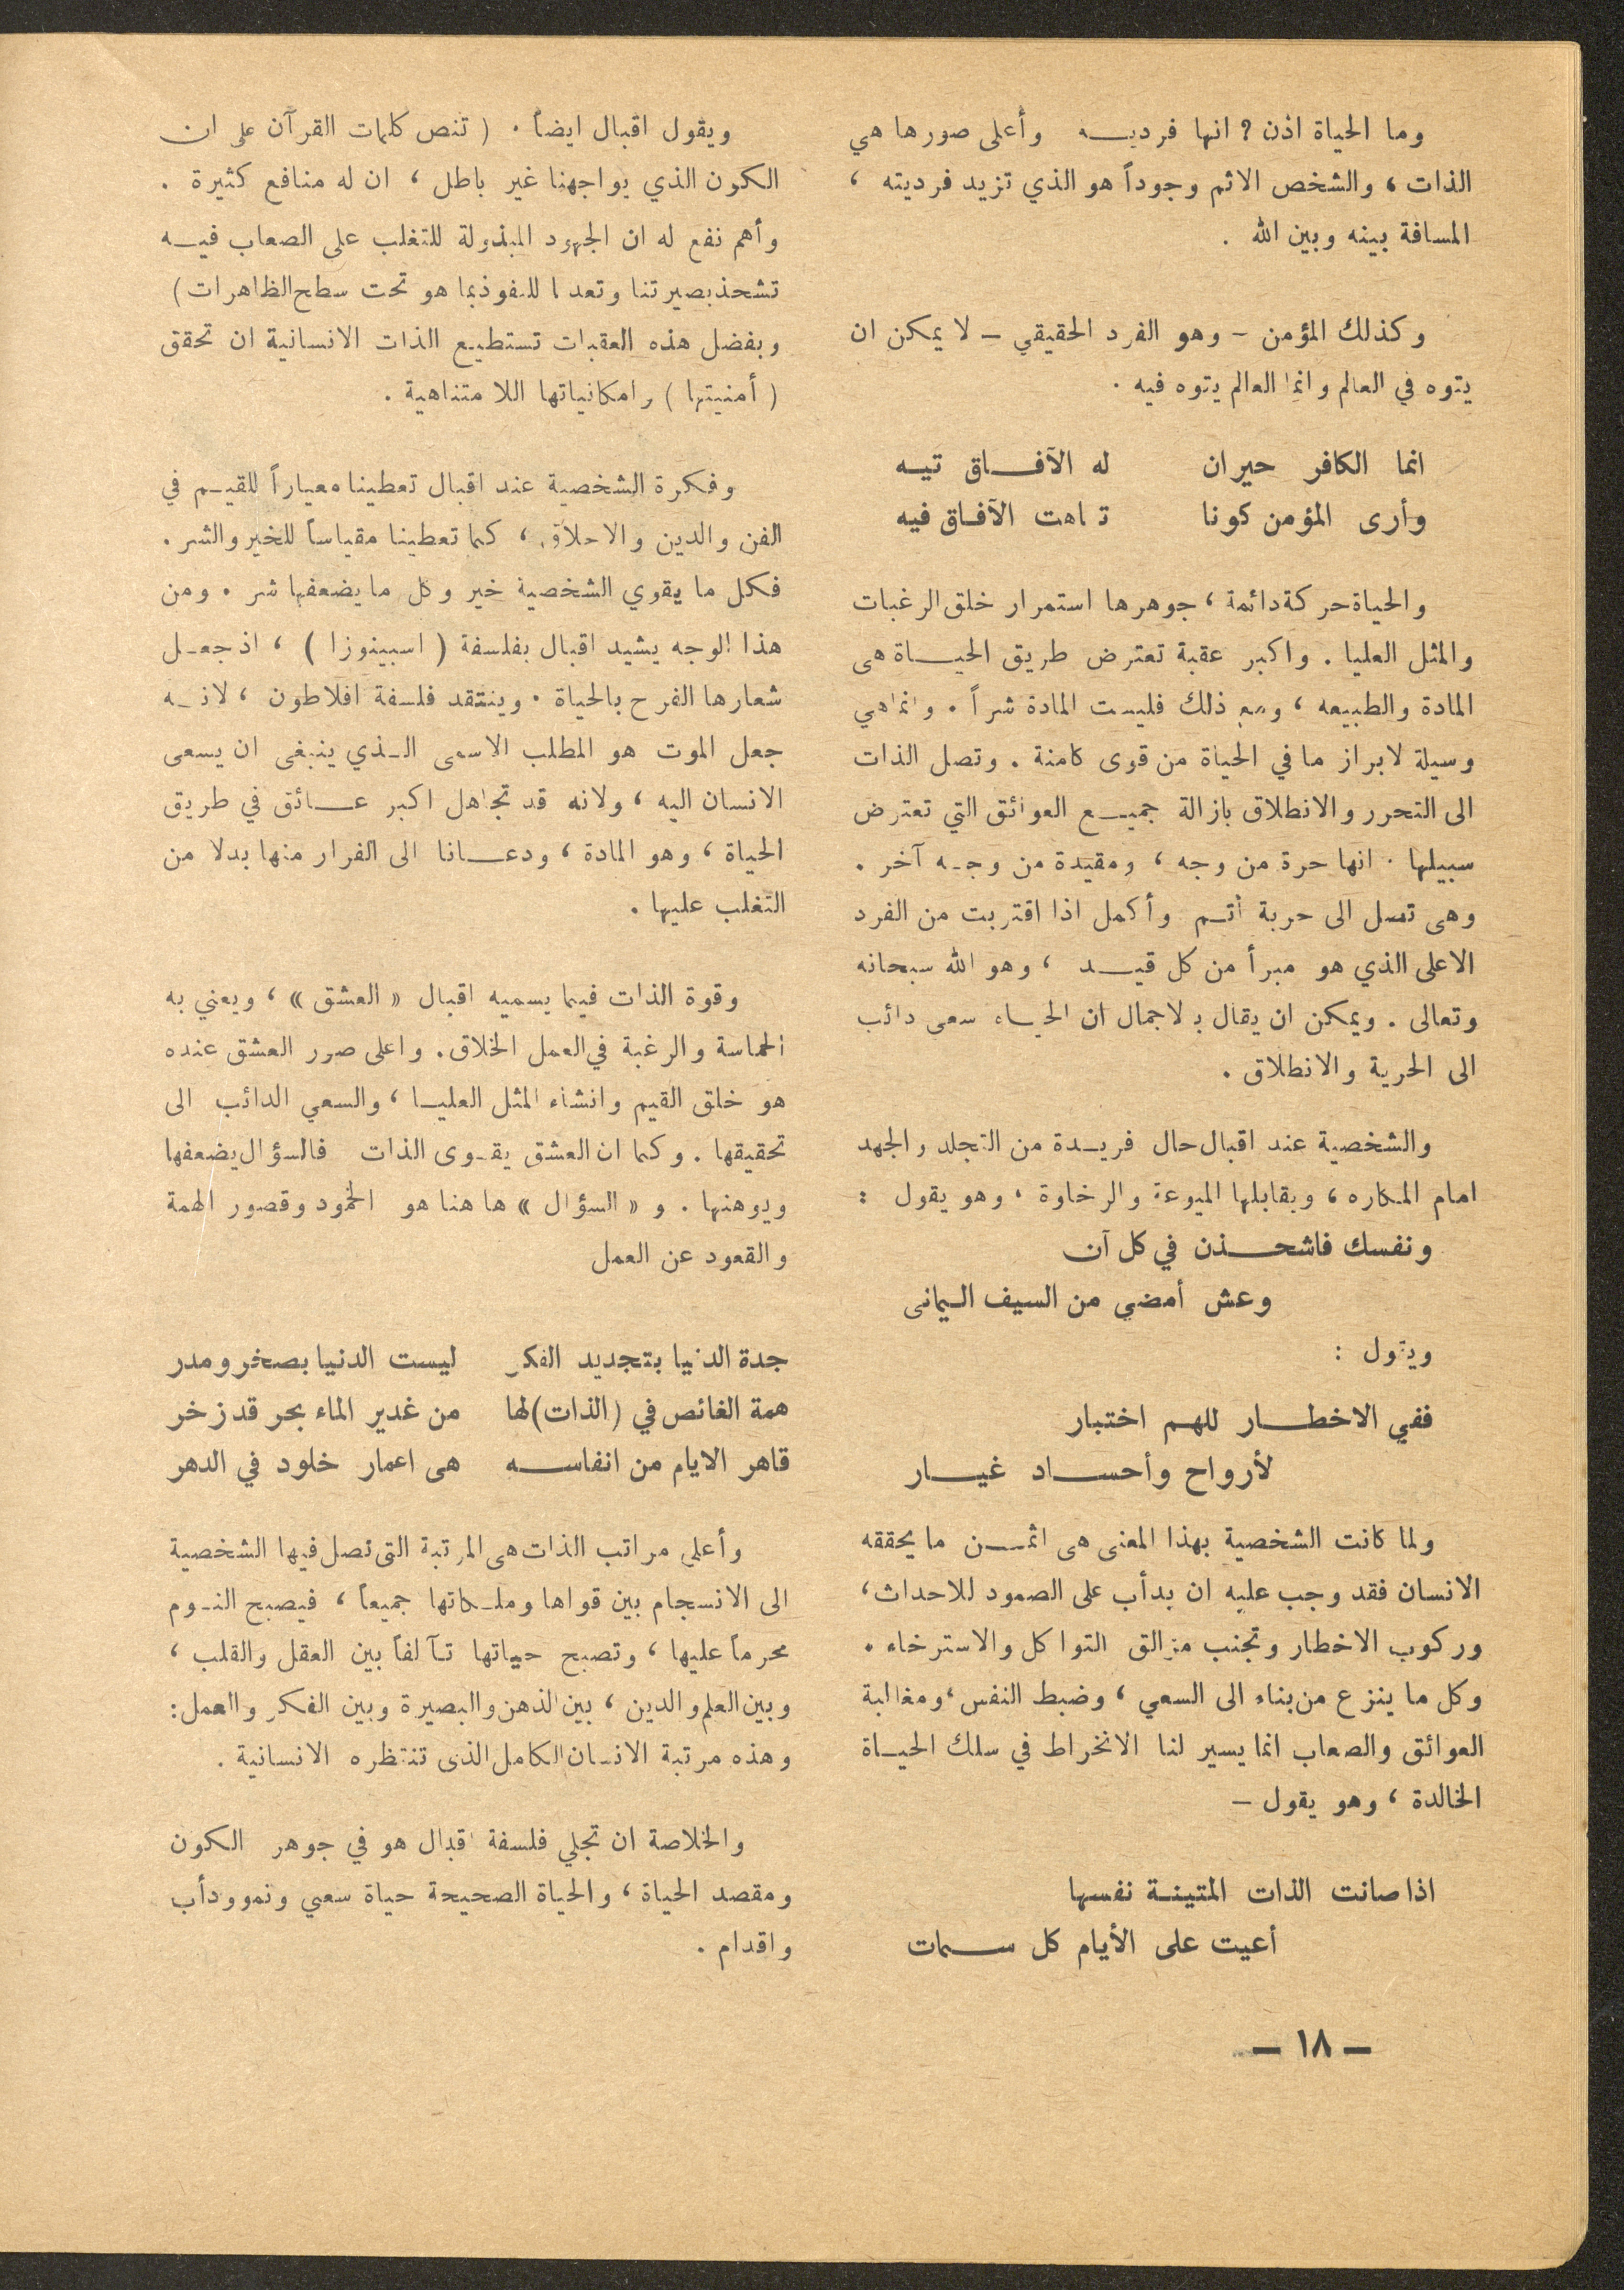 وما الحياة اذن ? انها فرديه وأعلى صورها هي
الذات ، والشخص الاتم وجوداً هو الذي تزيد فرديته ،
المسافة بينه وبين الله .
وكذلك المؤمن – وهو الفرد الحقيقي – لا يمكن ان
يتوه في العالم وانما العالم يتوه فيه .
انما الكافر حيران له الآفاق تيه
وأرى المؤمن كونا تاهت الآفاق فيه
والحياة حركة دائمة ، جوهرها استمرار خلق الرغبات
والمثل العليا . واكبر عقبة تعترض طريق الحياة هى
المادة والطبيعه ، ومع ذلك فليست المادة شراً . وانما هي
وسيلة لابراز ما في الحياة من قوى كامنة . وتصل الذات
الى التحرر والانطلاق بازالة جميع العوائق التي تعترض
سبيلها . انها حرة من وجه ، ومقيدة من وجه آخر .
وهى تصل الى حرية أتم وأكمل اذا اقتربت من الفرد
الاعلى الذي هو مبرأ من كل قيد ، وهو الله سبحانه
وتعالى . ويمكن ان يقال بالاجمال ان الحياه سعى دائب
الى الحرية والانطلاق .
والشخصية عند اقبال حال فريدة من التجلد والجهد
امام المكاره ، ويقابلها الميوعة والرخاوة ، وهو يقول :
ونفسك فاشحذن في كل آن
وعش أمضي من السيف اليمانى
ويقول :
ففي الاخطار للهم اختبار
لأرواح وأحساد غيار
ولما كانت الشخصية بهذا المعنى هى اثمن ما يحققه
الانسان فقد وجب عليه ان يدأب على الصمود للاحداث ،
وركوب الاخطار وتجنب مزالق التواكل والاسترخاء .
وكل ما ينزع من بناء الى السعي ، وضبط النفس ، ومغالبة
العوائق والصعاب انما يسير لنا الانخراط في سلك الحياة
الخالدة ، وهو يقول –
اذا صانت الذات المتينة نفسها
أعيت على الأيام كل سمات
– ١٨ –
ويقول اقبال ايضاً . ( تنص كلمات القرآن على ان
الكون الذي يواجهنا غير باطل ، ان له منافع كثيرة .
وأهم نفع له ان الجهود المبذولة للتغلب على الصعاب فيه
تشحذ بصيرتنا وتعدنا للنفوذ بما هو تحت سطح الظاهرات )
وبفضل هذه العقبات تستطيع الذات الانسانية ان تحقق
( أمنيتها ) وامكانياتها اللا متناهية .
وفكرة الشخصية عند اقبال تعطينا معياراً للقيم في
الفن والدين والاخلاق ، كما تعطينا مقياساً للخير والشر .
فكل ما يقوي الشخصية خير وكل ما يضعفها شر . ومن
هذا الوجه يشيد اقبال بفلسفة ( اسبينوزا ) ، اذ جعل
شعارها الفرح بالحياة . وينتقد فلسفة افلاطون ، لانه
جعل الموت هو المطلب الاسمى الذي ينبغى ان يسعى
الانسان اليه ، ولانه قد تجاهل اكبر عائق في طريق
الحياة ، وهو المادة ، ودعانا الى الفرار منها بدلا من
التغلب عليها .
وقوة الذات فيما يسميه اقبال « العشق » ، ويعني به
الحماسة والرغبة في العمل الخلاق . واعلى صور العشق عنده
هو خلق القيم وانشاء المثل العليا ، والسعي الدائب الى
تحقيقها . وكما ان العشق يقوى الذات فالسؤال يضعفها
ويوهنها . و « السؤال » هاهنا هو الخمود وقصور الهمة
والقعود عن العمل
جدة الدنيا بتجديد الفكر ليست الدنيا بصخر ومدر
همة الغائص في (الذات) لها من غدير الماء بحر قد زخر
قاهر الايام من انفاسه هى اعمار خلود في الدهر
وأعلي مراتب الذات هى المرتبة التى تصل فيها الشخصية
الى الانسجام بين قواها وملكاتها جميعاً ، فيصبح النوم
محرماً عليها ، وتصبح حياتها تآلفاً بين العقل والقلب ،
وبين العلم والدين ، بين الذهن والبصيرة وبين الفكر والعمل :
وهذه مرتبة الانسان الكامل الذى تنتظره الانسانية .
والخلاصة ان تجلي فلسفة اقبال هو في جوهر الكون
ومقصد الحياة ، والحياة الصحيحة حياة سعي ونمو ودأب
واقدام .